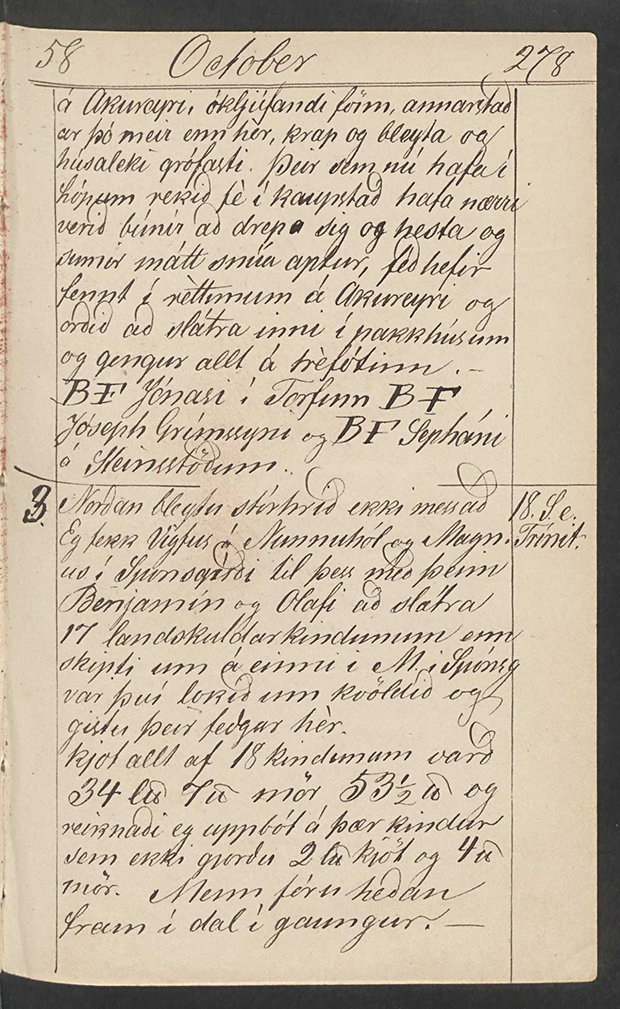 58 October 278
á Akureyri, ókljúfandi fönn, annarstað
ar þó meir enn hér, krap og bleyta og
húsaleki grófasti. Þeir sem nú hafa í
hópum rekið fè í kaupstað hafa nærri
verið búnir að drepa sig og hesta og
sumir mátt snúa aptur, féð hefir
fennt í rèttinum á Akureyri og
orðið að slátra inni í pakkhúsum
og gengur allt á trèfótinn. —
BF Jónasi í Torfunn BF
Jóseph Grímssyni og BF Sepháni
á Steinsstöðum.
3. Norðan bleytu stórhríð ekki messað 18. S. e.
Eg fekk Vigfus á Nunnuhól og Magn- Trinit.
us í Spónsgerði til þess með þeim
Benjamín og Olafi að slátra
17 landskuldarkindunum enn
skipti um á einni i M. i Spónsg
var því lokið um kvöldið og
gistu þeir feðgar hèr.
Kjöt allt af 18 kindunum varð
34 l℔ 7℔ mör 53½ ℔ og
reiknaði eg uppbót á þær kindur
sem ekki gjorðu 2 l℔ kjöt og 4℔
mör. Menn fóru heðan
fram í dal í gaungur. —